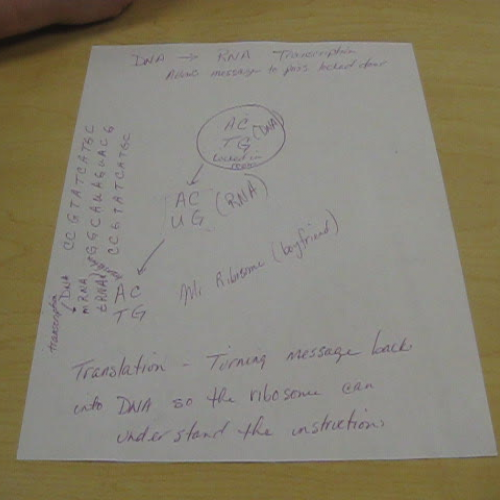 DNA → RNA Transcription
Allows message to pass locked door
AC
TG (DNA)
Locked in room
AC
UG (RNA)
AC
TG
Mr Ribosome (boyfriend)
transcription
DNA CCGTATCATGC
mRNA GGCAUAGUACG
tRNA CCGTATCATGC
Translation - Turning message back
into DNA so the ribosome can
understand the instructions